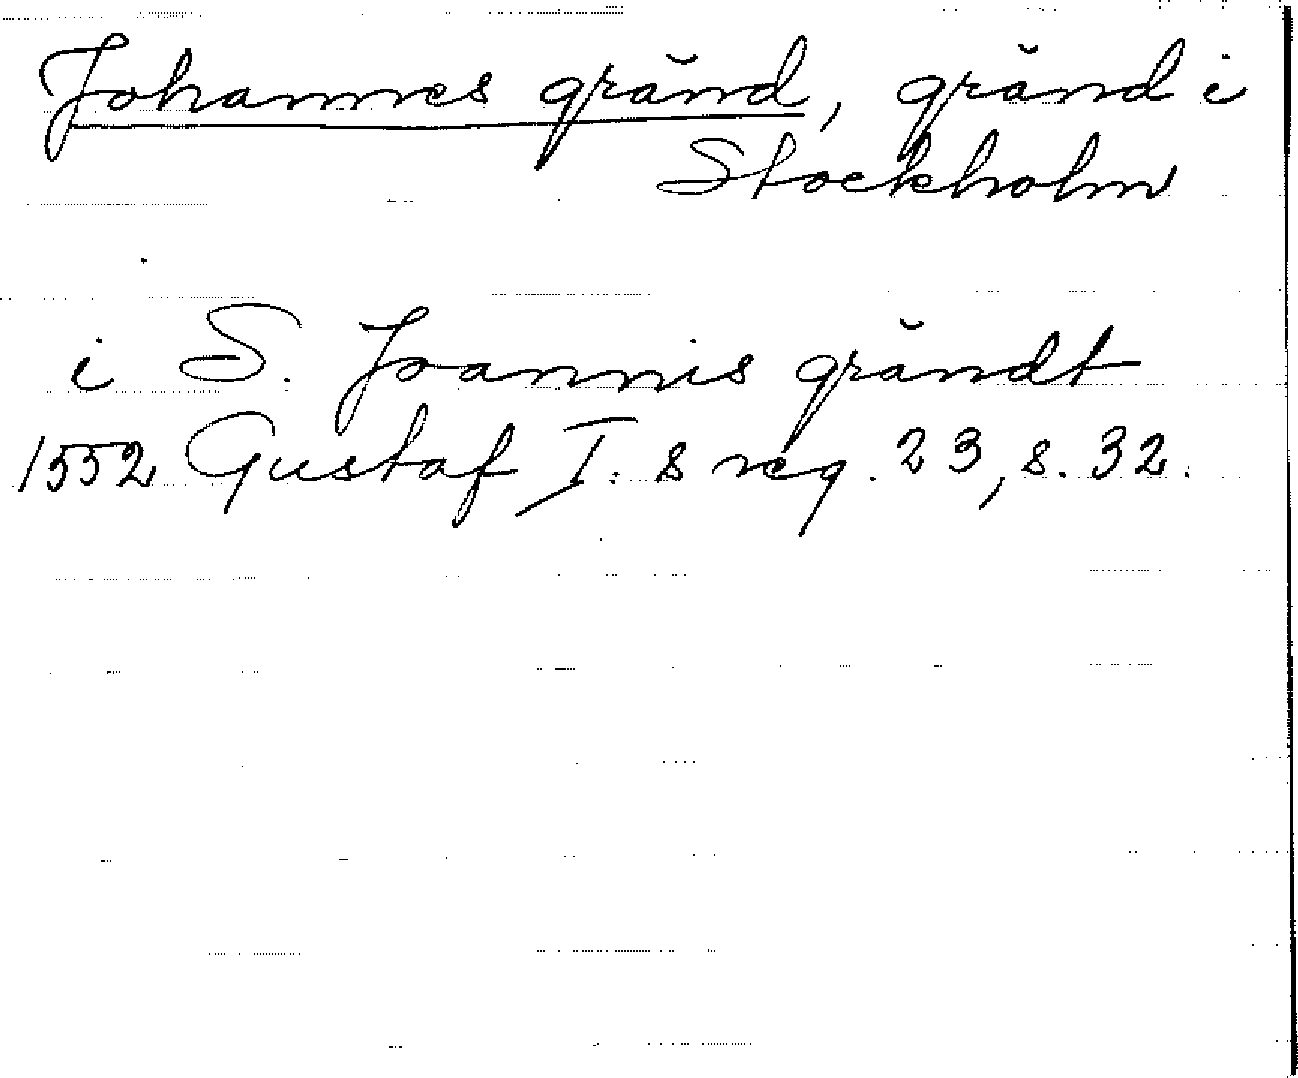 Johannes gränd, gränd i
Stockholm
i S. Joannis grändt
1552 Gustaf I. s reg. 23, s. 32.